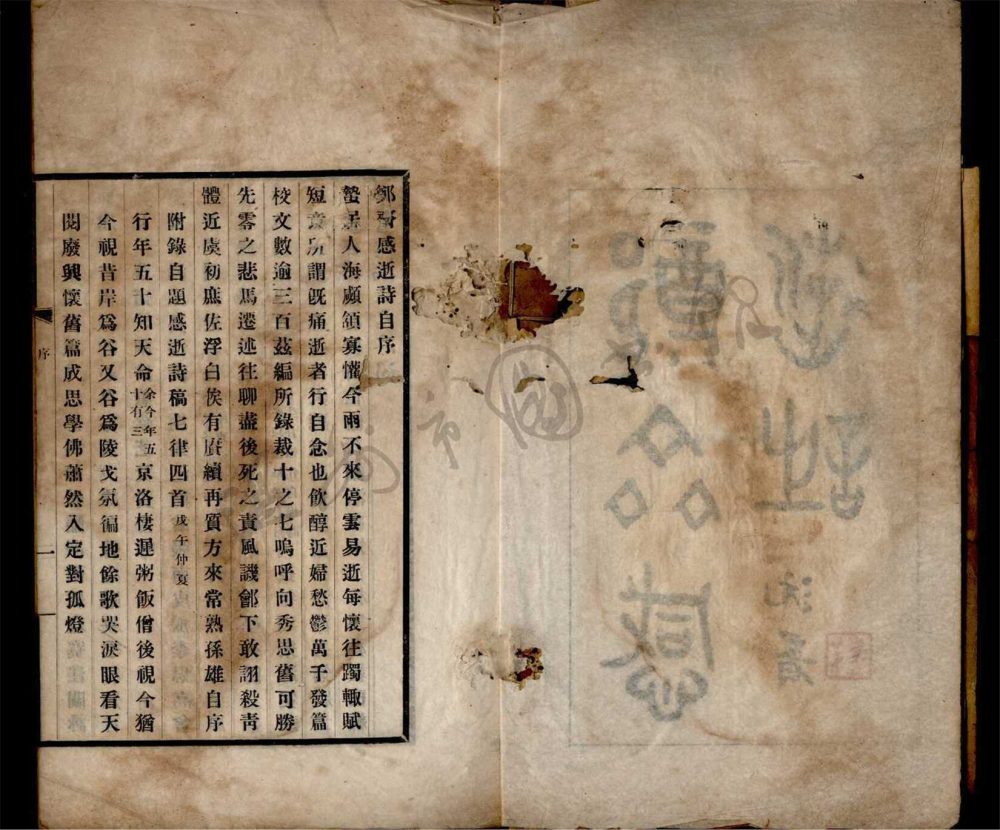 鄭齋感逝詩自序
蟄居人海顑頷寡懽今雨不來停雲易逝每懷往躅輒賦
短章所謂旣痛逝者行自念也飮醇近婦愁鬱萬千發篇
校文數逾三百茲編所錄裁十之七嗚呼向秀思舊可勝
先零之悲馬遷述往聊盡後死之責風譏鄶下敢詡殺靑
體近虞初庶佐浮白俟有賡續再質方來常熟孫雄自序
附錄自題感逝詩稿七律四首戊午仲夏
行年五十知天命余今年五十有三京洛棲遲粥飯僧後視今猶
今視昔岸爲谷又谷爲陵戈氛徧地餘歌哭淚眼看天
閱廢興懷舊篇成思學佛蕭然入定對孤燈
序
一